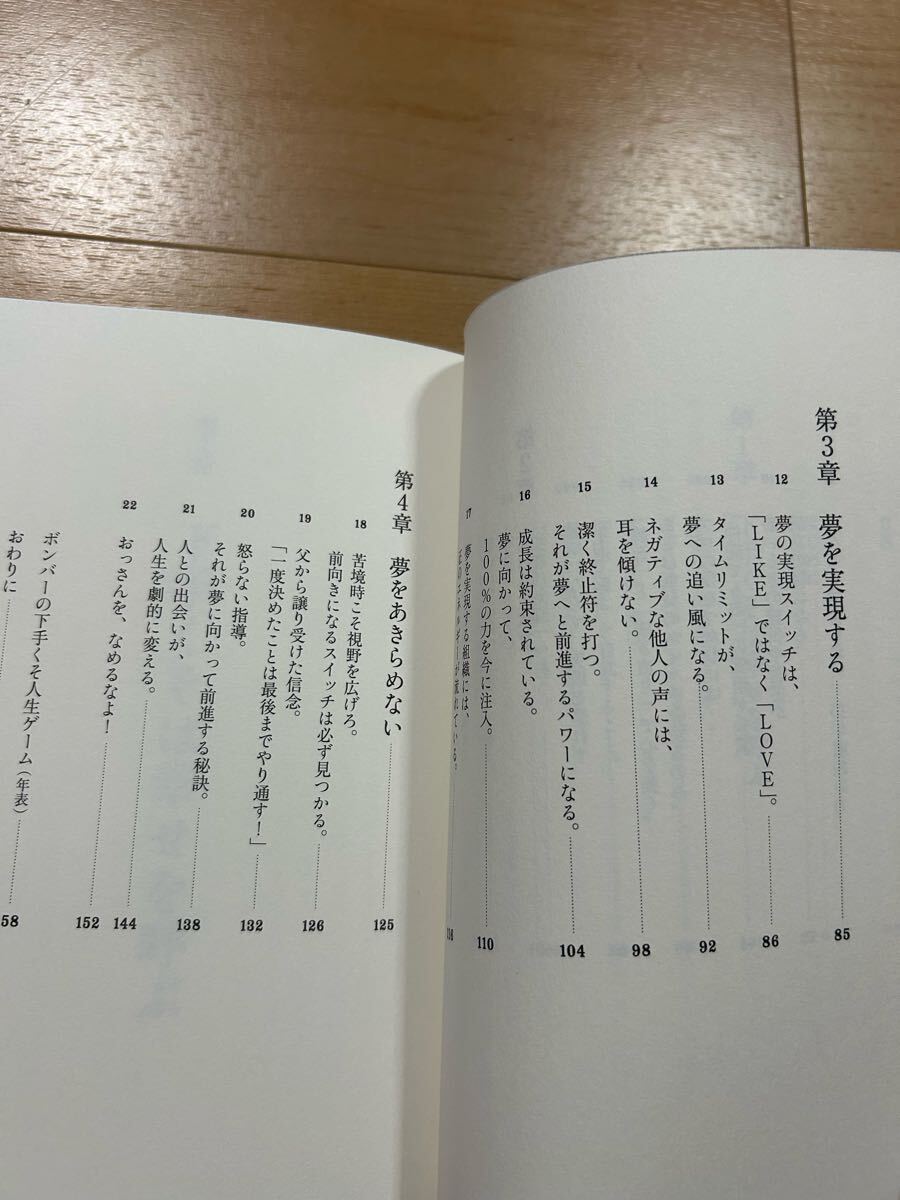 第3章 夢を実現する 85
12 夢の実現スイッチは、
「LIKE」ではなく「LOVE」。 86
13 タイムリミットが、
夢への追い風になる。 92
14 ネガティブな他人の声には、
耳を傾けない。 98
15 潔く終止符を打つ。
それが夢へと前進するパワーになる。 104
16 成長は約束されている。
夢に向かって、
100%の力を今に注入。 110
17 夢を実現する組織には、
が流れている。 116
第4章 夢をあきらめない 125
18 苦境時こそ視野を広げろ。
前向きになるスイッチは必ず見つかる。 126
19 父から譲り受けた信念。
「一度決めたことは最後までやり通す!」 132
20 怒らない指導。
それが夢に向かって前進する秘訣。 138
21 人との出会いが、
人生を劇的に変える。 144
22 おっさんを、なめるなよ! 152
ボンバーの下手くそ人生ゲーム(年表)
おわりに 58